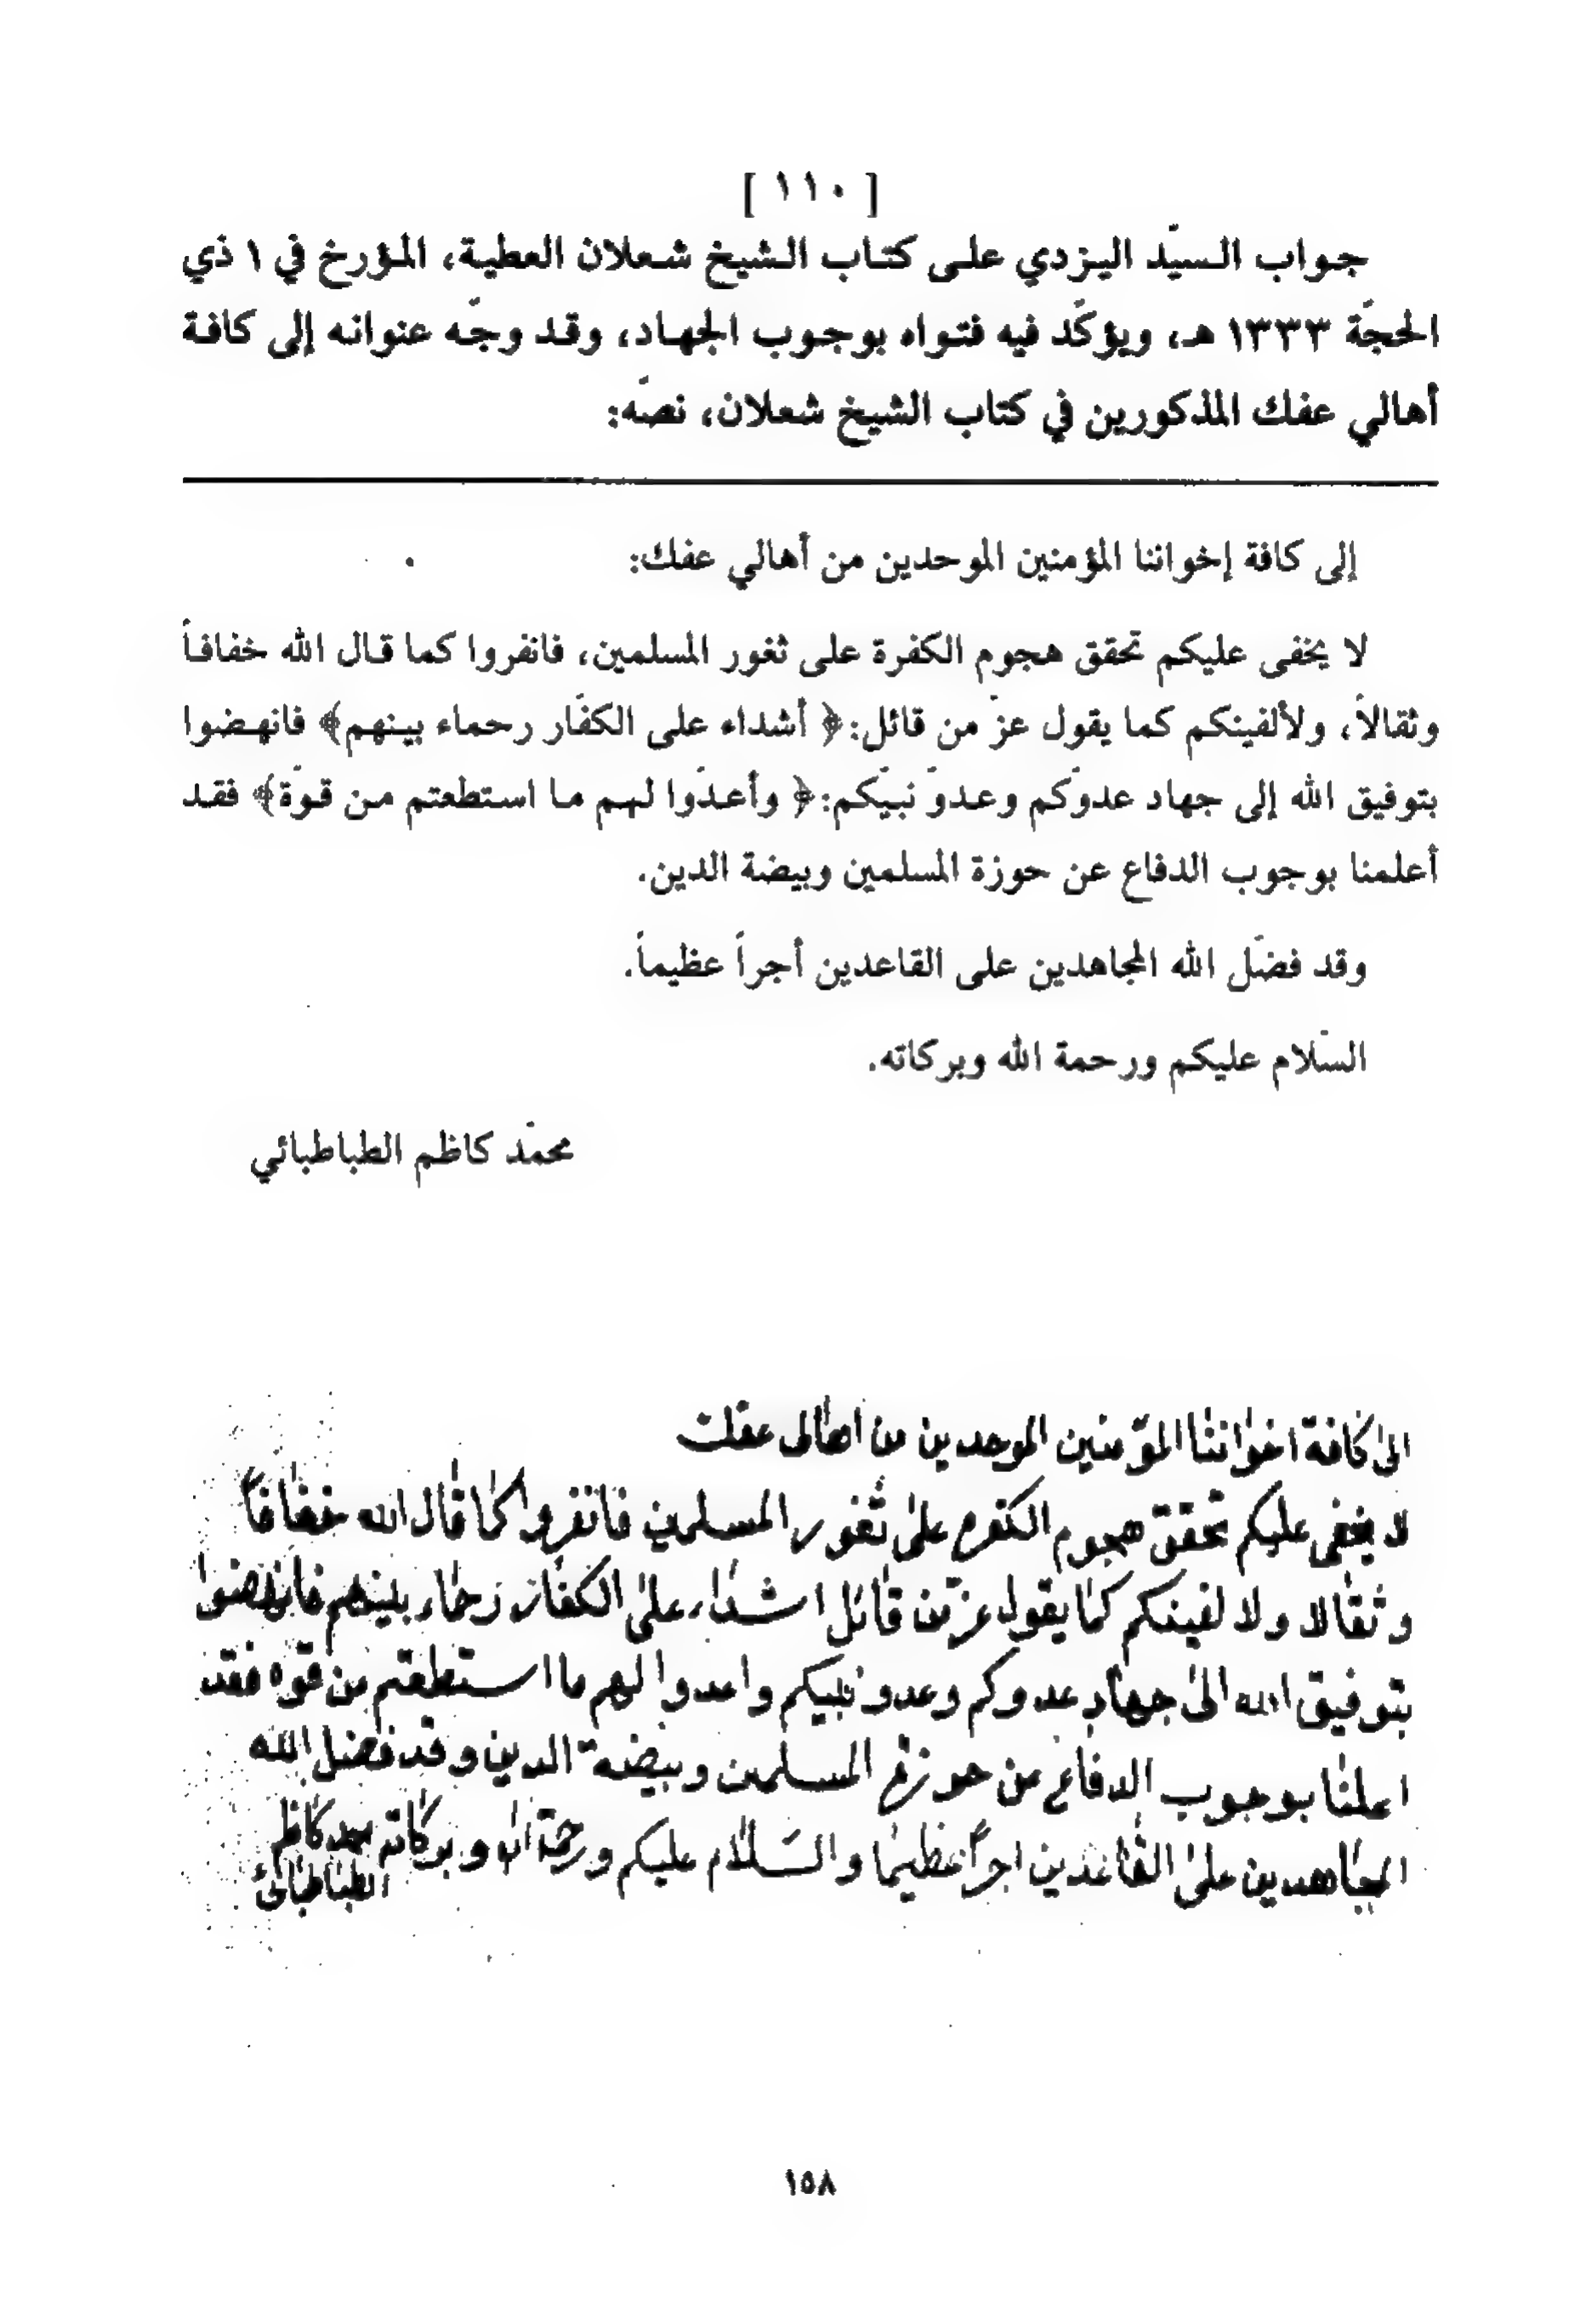 [ ١١٠ ]
جواب السيّد اليزدي على كتاب الشيخ شعلان العطية، المؤرخ في ١ ذي
الحجّة ١٣٣٣ هـ، ويؤكّد فيه فتواه بوجوب الجهاد، وقد وجّه عنوانه إلى كافة
أهالي عفك المذكورين في كتاب الشيخ شعلان، نصّه:
إلى كافة إخواننا المؤمنين الموحدين من أهالي عفك:
لا يخفى عليكم تحقق هجوم الكفرة على ثغور المسلمين، فانفروا كما قال الله خفافاً
وثقالاً، ولألفينكم كما يقول عزّ من قائل:﴿ أشداء على الكفّار رحماء بينهم﴾ فانهضوا
بتوفيق الله إلى جهاد عدوّكم وعدوّ نبيّكم:﴿ وأعدّوا لهم ما استطعتم من قوّة﴾ فقد
أعلمنا بوجوب الدفاع عن حوزة المسلمين وبيضة الدين.
وقد فضّل الله المجاهدين على القاعدين أجراً عظيماً.
السّلام عليكم ورحمة الله وبركاته.
محمّد كاظم الطباطبائي
الى كافة اخواننا المؤمنين الموحدين من اهالى عفك
لا يخفى عليكم تحقق هجوم الكفره على ثغور المسلمين فانفروا كما قال الله خفافاً
وثقالا ولا لفينكم كما يقول عز من قائل اشداء على الكفار رحماء بينهم فانهضوا
بتوفيق الله الى جهاد عدوكم وعدو نبيكم واعدوا لهم ما استطعتم من قوه فقد
اعلمنا بوجوب الدفاع عن حوزة المسلمين وبيضة الدين وقد فضل الله
المجاهدين على القاعدين اجراً عظيما والسّلام عليكم ورحمة الله وبركاته محمد كاظم
الطباطبائى
١٥٨